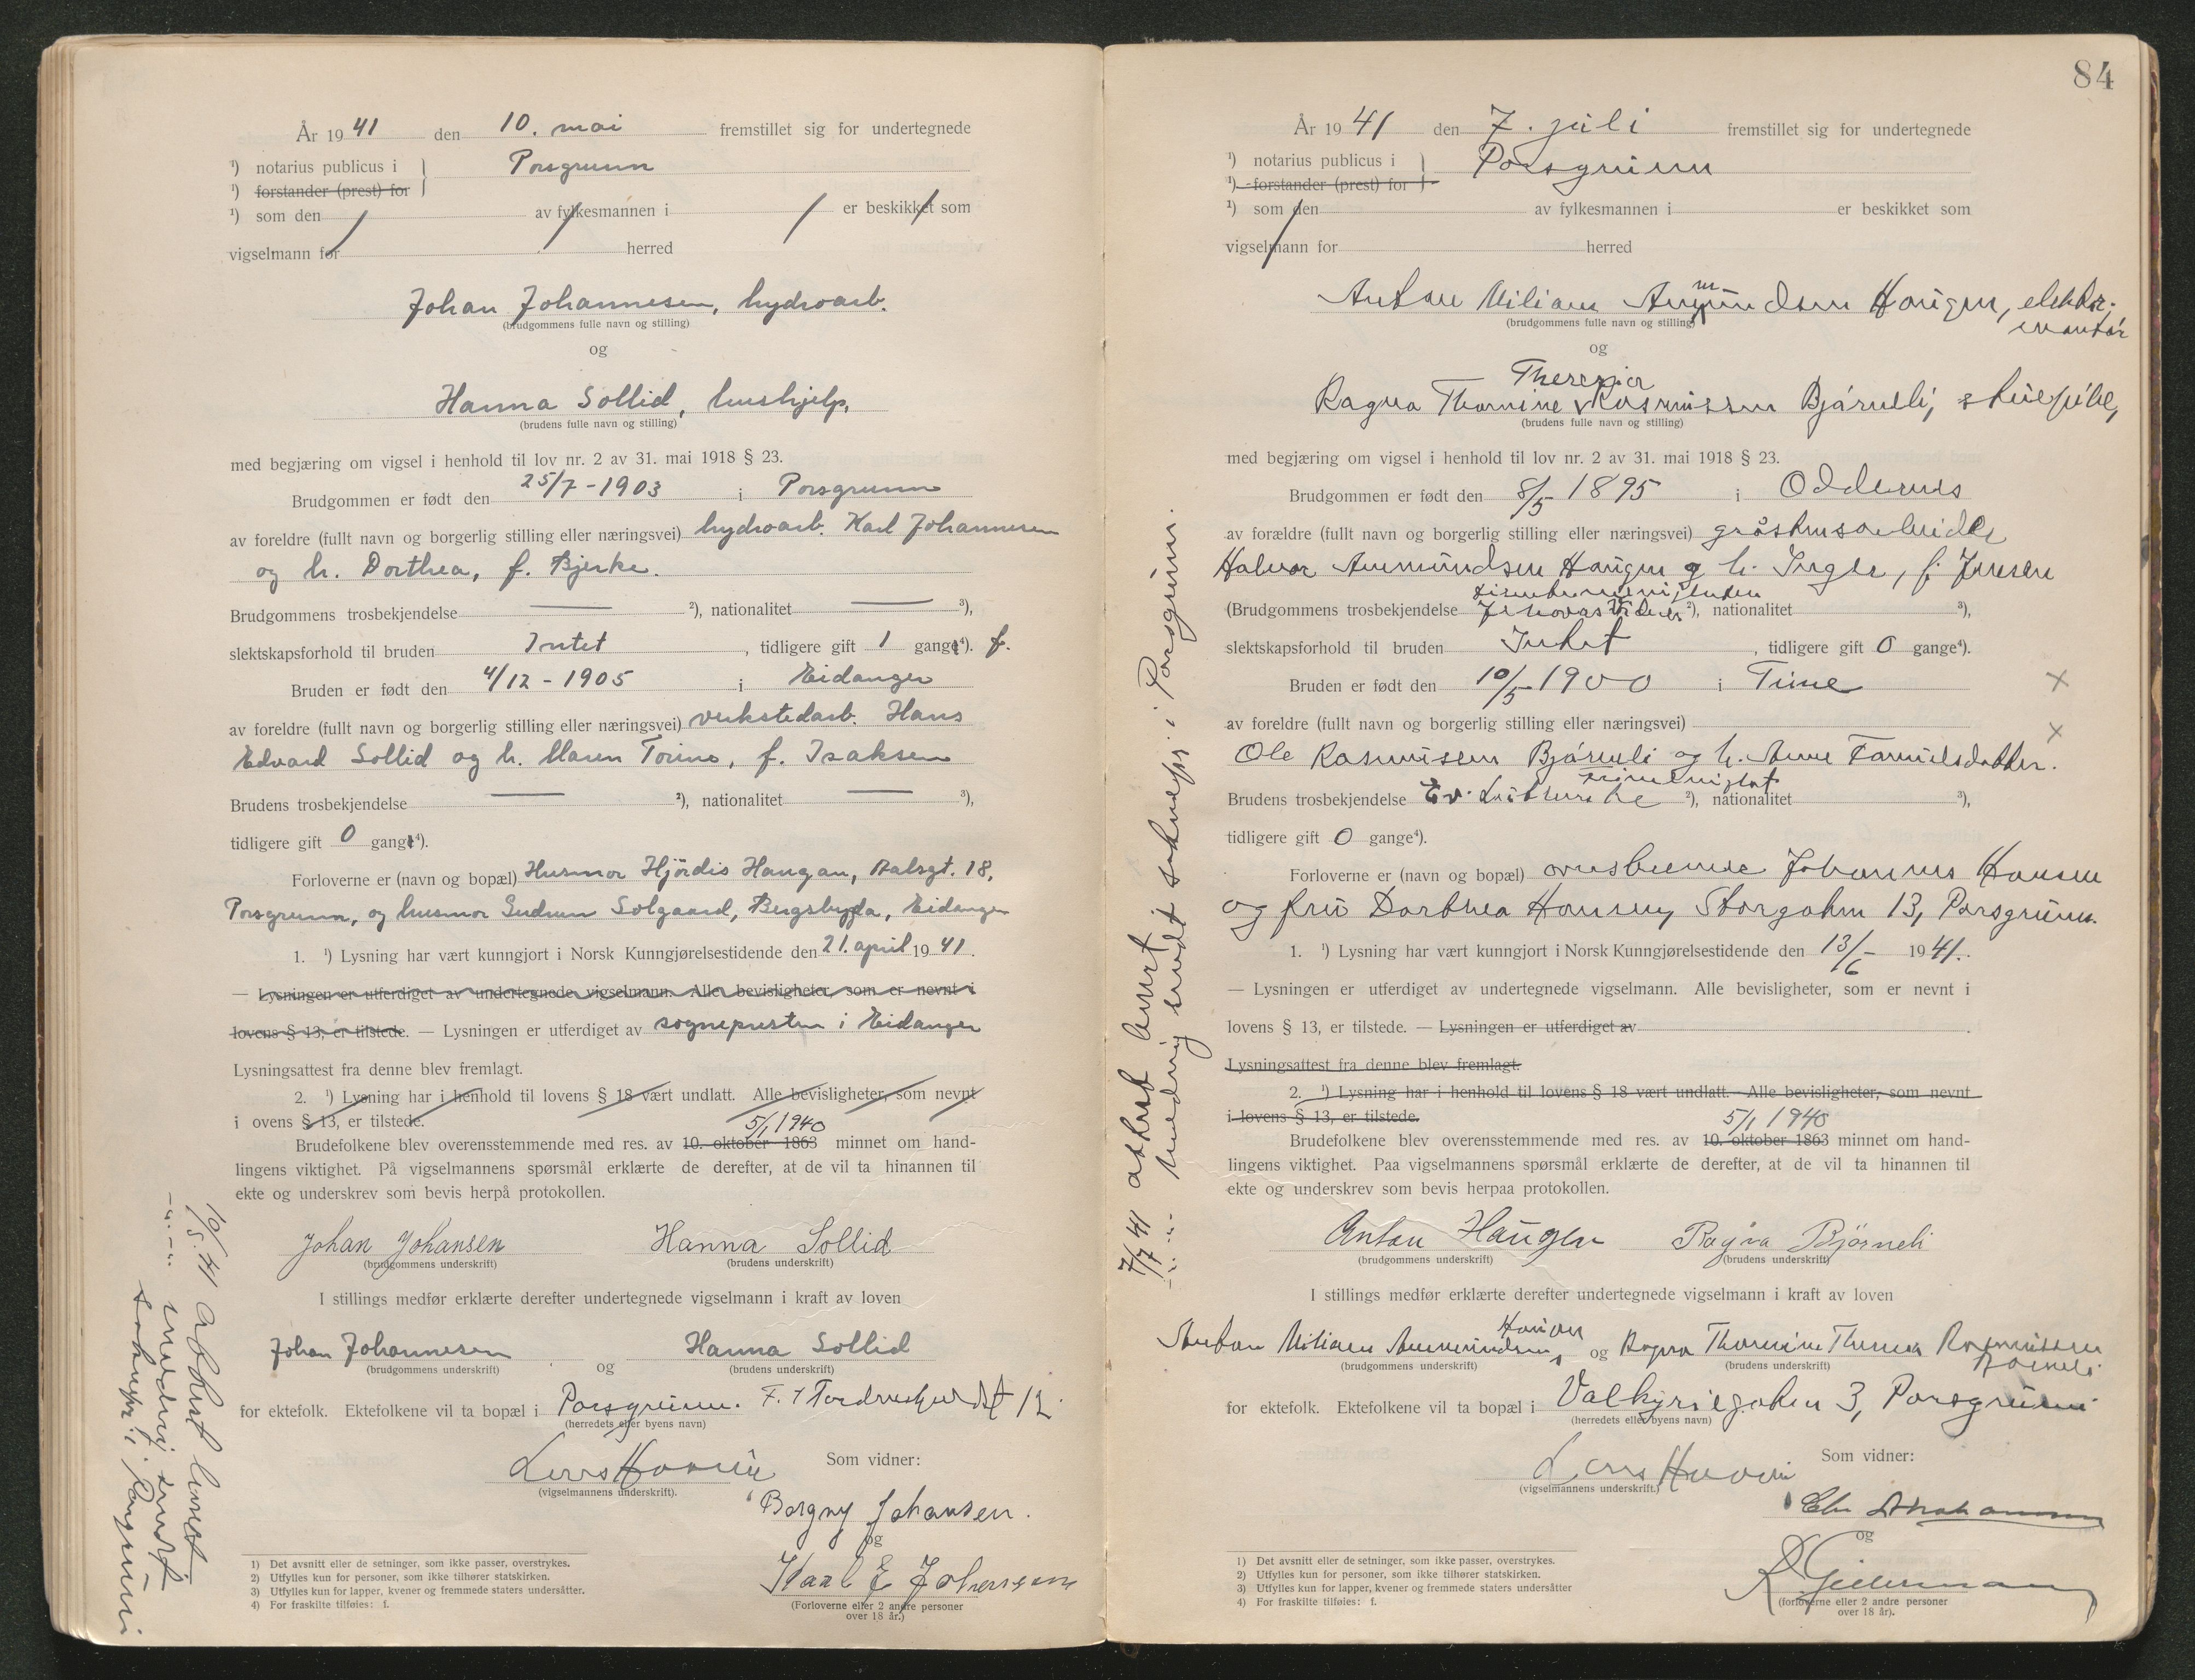 År 1941 den 10. mai fremstillet sig for undertegnede
¹) notarius publicus i } Porsgrunn
¹) forstander (prest) for
¹) som den av fylkesmannen i er beskikket som
vigselmann for herred
Johan Johannesen, hydroarb.
(brudgommens fulle navn og stilling)
og
Hanna Sollid, hushjelp,
(brudens fulle navn og stilling)
med begjæring om vigsel i henhold til lov nr. 2 av 31. mai 1918 § 23.
Brudgommen er født den 25/7 - 1903 i Porsgrunn
av foreldre (fullt navn og borgerlig stilling eller næringsvei) hydroarb. Karl Johannesen
og h. Dorthea, f. Bjerke.
Brudgommens trosbekjendelse — ²), nationalitet — ³),
slektskapsforhold til bruden Intet, tidligere gift 1 gang⁴). f.
Bruden er født den 4/12 - 1905 i Eidanger
av foreldre (fullt navn og borgerlig stilling eller næringsvei) verkstedarb. Hans
Edvard Sollid og h. Maren Torine, f. Isaksen
Brudens trosbekjendelse — ²), nationalitet — ³),
tidligere gift 0 gang⁴).
Forloverne er (navn og bopæl) Husmor Hjördis Haugan, Aalsgt. 18,
Porsgrunn, og husmor Gudrun Solgaard, Bergsbygda, Eidanger
1. ¹) Lysning har vært kunngjort i Norsk Kunngjørelsestidende den 21. april 1941.
— Lysningen er utferdiget av undertegnede vigselmann. Alle bevisligheter, som er nevnt i
lovens § 13, er tilstede. — Lysningen er utferdiget av sognepresten i Eidanger
Lysningsattest fra denne blev fremlagt.
2. ¹) Lysning har i henhold til lovens § 18 vært undlatt. Alle bevisligheter, som nevnt
i ovens § 13, er tilstede.
5/1 1940
Brudefolkene blev overensstemmende med res. av 10. oktober 1863 minnet om hand-
lingens viktighet. På vigselmannens spørsmål erklærte de derefter, at de vil ta hinannen til
ekte og underskrev som bevis herpå protokollen.
Johan Johansen Hanna Sollid
(brudgommens underskrift) (brudens underskrift)
I stillings medfør erklærte derefter undertegnede vigselmann i kraft av loven
Johan Johannesen og Hanna Sollid
(brudgommens underskrift) (brudens underskrift)
for ektefolk. Ektefolkene vil ta bopæl i Porsgrunn.
(herredets eller byens navn)
(vigselmannens underskrift).
Som vidner:
Borgny Johansen.
og
Karl E Johansen
(Forloverne eller 2 andre personer
over 18 år.)
1) Det avsnitt eller de setninger, som ikke passer, overstrykes.
2) Utfylles kun for personer, som ikke tilhører statskirken.
3) Utfylles kun for lapper, kvener og fremmede staters undersåtter.
4) For fraskilte tilføies: f.
10/5. 41 attest levert
-"- -"- melding sendt
sokneprs. i Porsgrunn
84
År 1941 den 7. juli fremstillet sig for undertegnede
¹) notarius publicus i } Porsgrunn
¹) forstander (prest) for
¹) som den av fylkesmannen i er beskikket som
vigselmann for herred
Anton Miliam Ammundsen Haugen, elektr.
montør
(brudgommens fulle navn og stilling)
og
Theresia
Ragna Thomine Rasmussen Bjørneli,
(brudens fulle navn og stilling)
med begjæring om vigsel i henhold til lov nr. 2 av 31. mai 1918 § 23.
Brudgommen er født den 8/5 1895 i Oddernes
av forældre (fullt navn og borgerlig stilling eller næringsvei)
Halvor Ammundsen Haugen og h. Inger, f. Jensen
(Brudgommens trosbekjendelse Jehovas Vidner ²), nationalitet ³),
slektskapsforhold til bruden Intet, tidligere gift 0 gange⁴).
Bruden er født den 10/5 1900 i Time
av foreldre (fullt navn og borgerlig stilling eller næringsvei)
Ole Rasmussen Bjørneli og h. Anne
Brudens trosbekjendelse Ev. Lutherske ²), nationalitet ³),
tidligere gift 0 gange⁴).
Forloverne er (navn og bopæl) Johannes Hansen
og fru Dorthea Hansen, Storgaten 13, Porsgrunn.
1. ¹) Lysning har vært kunngjort i Norsk Kunngjørelsestidende den 13/6 1941.
— Lysningen er utferdiget av undertegnede vigselmann. Alle bevisligheter, som er nevnt i
lovens § 13, er tilstede. — Lysningen er utferdiget av
Lysningsattest fra denne blev fremlagt.
2. ¹) Lysning har i henhold til lovens § 18 vært undlatt. Alle bevisligheter, som nevnt
i lovens § 13, er tilstede.
5/1 1940
Brudefolkene blev overensstemmende med res. av 10. oktober 1863 minnet om hand-
lingens viktighet. Paa vigselmannens spørsmål erklærte de derefter, at de vil ta hinannen til
ekte og underskrev som bevis herpaa protokollen.
Anton Haugen Ragna Bjørneli
(brudgommens underskrift) (brudens underskrift)
I stillings medfør erklærte derefter undertegnede vigselmann i kraft av loven
Haugen
Anton Miliam Ammundsen og Ragna Thomine Theresia Rasmussen
Bjørneli
(brudgommens underskrift) (brudens underskrift)
for ektefolk. Ektefolkene vil ta bopæl i Valkyriegaten 3, Porsgrunn
(herredets eller byens navn)
(vigselmannens underskrift.)
Som vidner:
og
(forloverne eller 2 andre personer
over 18 år).
1) Det avsnitt eller de setninger, som ikke passer, overstrykes.
2) Utfylles kun for personer, som ikke tilhører statskirken.
3) Utfylles kun for lapper, kvener og fremmede staters undersåtter
4) For fraskilte tilføies: f.
7/7 41 attest levert
-"- -"- melding sendt soknepr. i Porsgrunn.